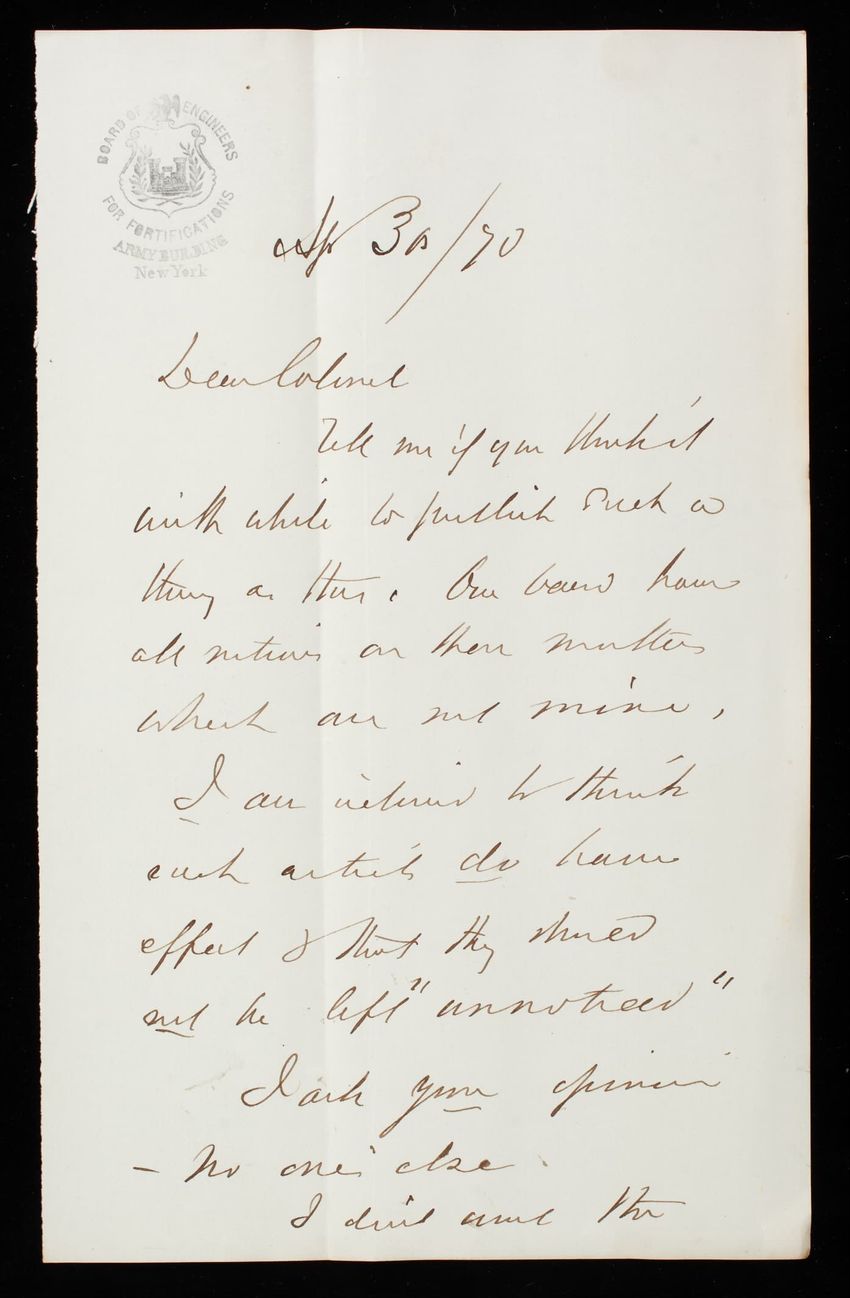 BOARD OF ENGINEERS
FOR FORTIFICATIONS
ARMY BUILDING
New York
Ap 30/70
Dear Colonel
Tell me if you think it
worth while to publish such a
thing as this. Our board have
all notions on these matters
which are not mine.
I am inclined to think
such articles do have
effect & that they should
not be left "unnoticed"
I ask your opinion
- no one's else.
I don't want the